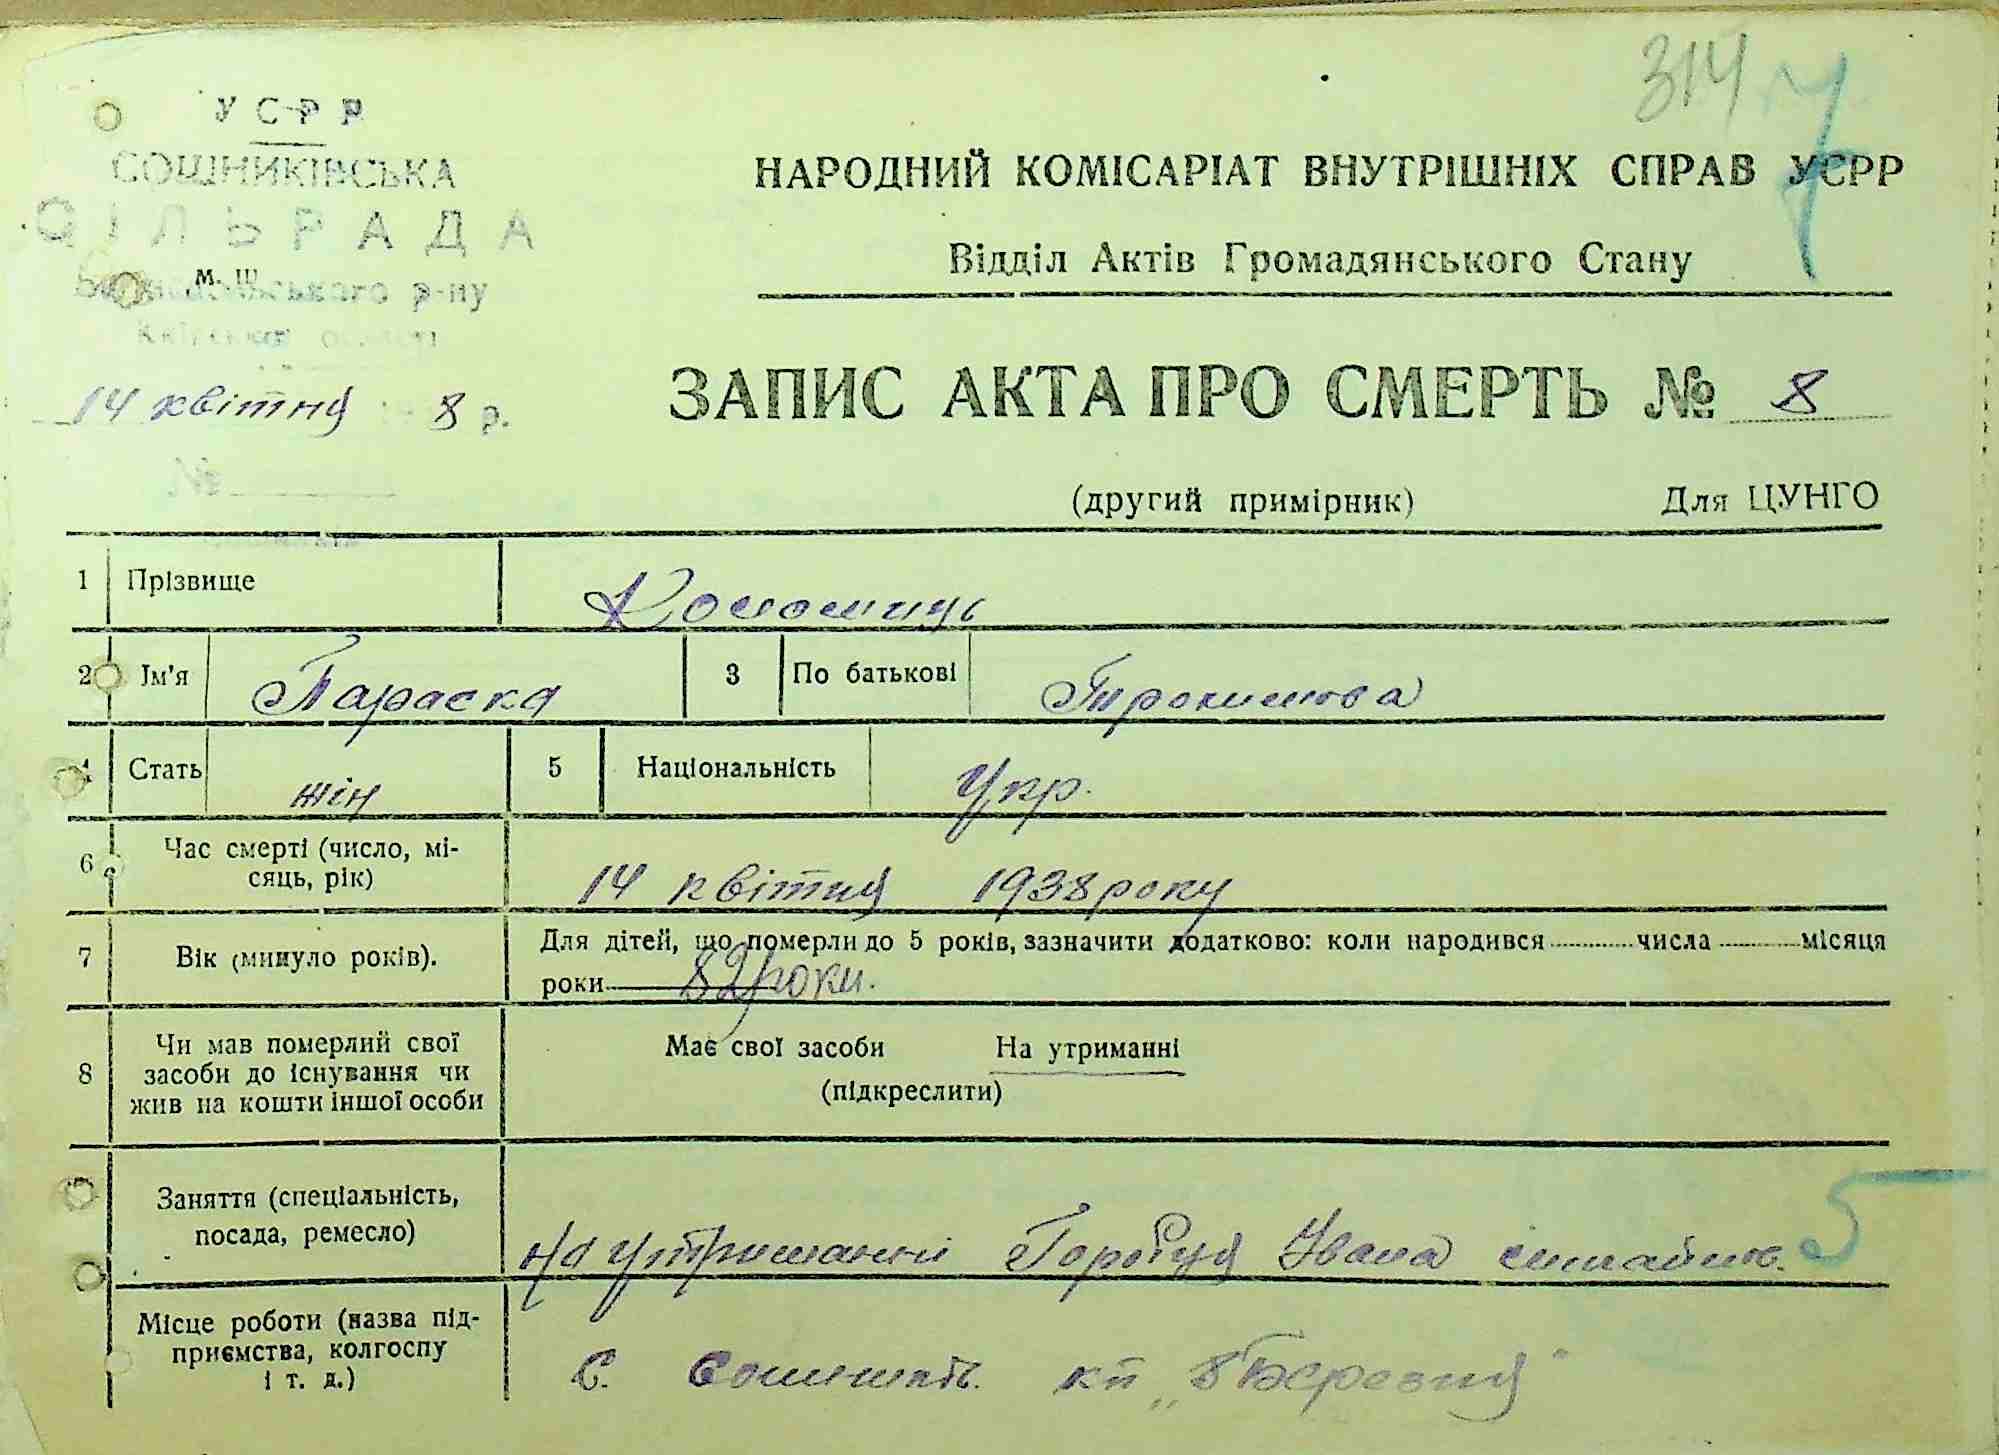 314
УСРР
СОШНИКІВСЬКА
СІЛЬРАДА
р-ну
М. Ш
Київської області
14 квітня 8 р.
№
НАРОДНИЙ КОМІСАРІАТ ВНУТРІШНІХ СПРАВ УСРР
Відділ Актів Громадянського Стану
ЗАПИС АКТА ПРО СМЕРТЬ № 8
(другий примірник) Для ЦУНГО
1 Прізвище Коломиць
2 Ім'я Параска 3 По батькові Трохимова
4 Стать жін 5 Національність Укр.
6 Час смерті (число, мі-
сяць, рік) 14 квітня 1938 року
7 Вік (минуло років). Для дітей, що померли до 5 років, зазначити додатково: коли народився числа місяця
роки 82 роки.
8 Чи мав померлий свої
засоби до існування чи
жив на кошти іншої особи
Має свої засоби На утриманні
(підкреслити)
Заняття (спеціальність,
посада, ремесло) на утриманні Горобця Івана 5
Місце роботи (назва під-
приємства, колгоспу
і т. д.) С. кп „8 Березня"